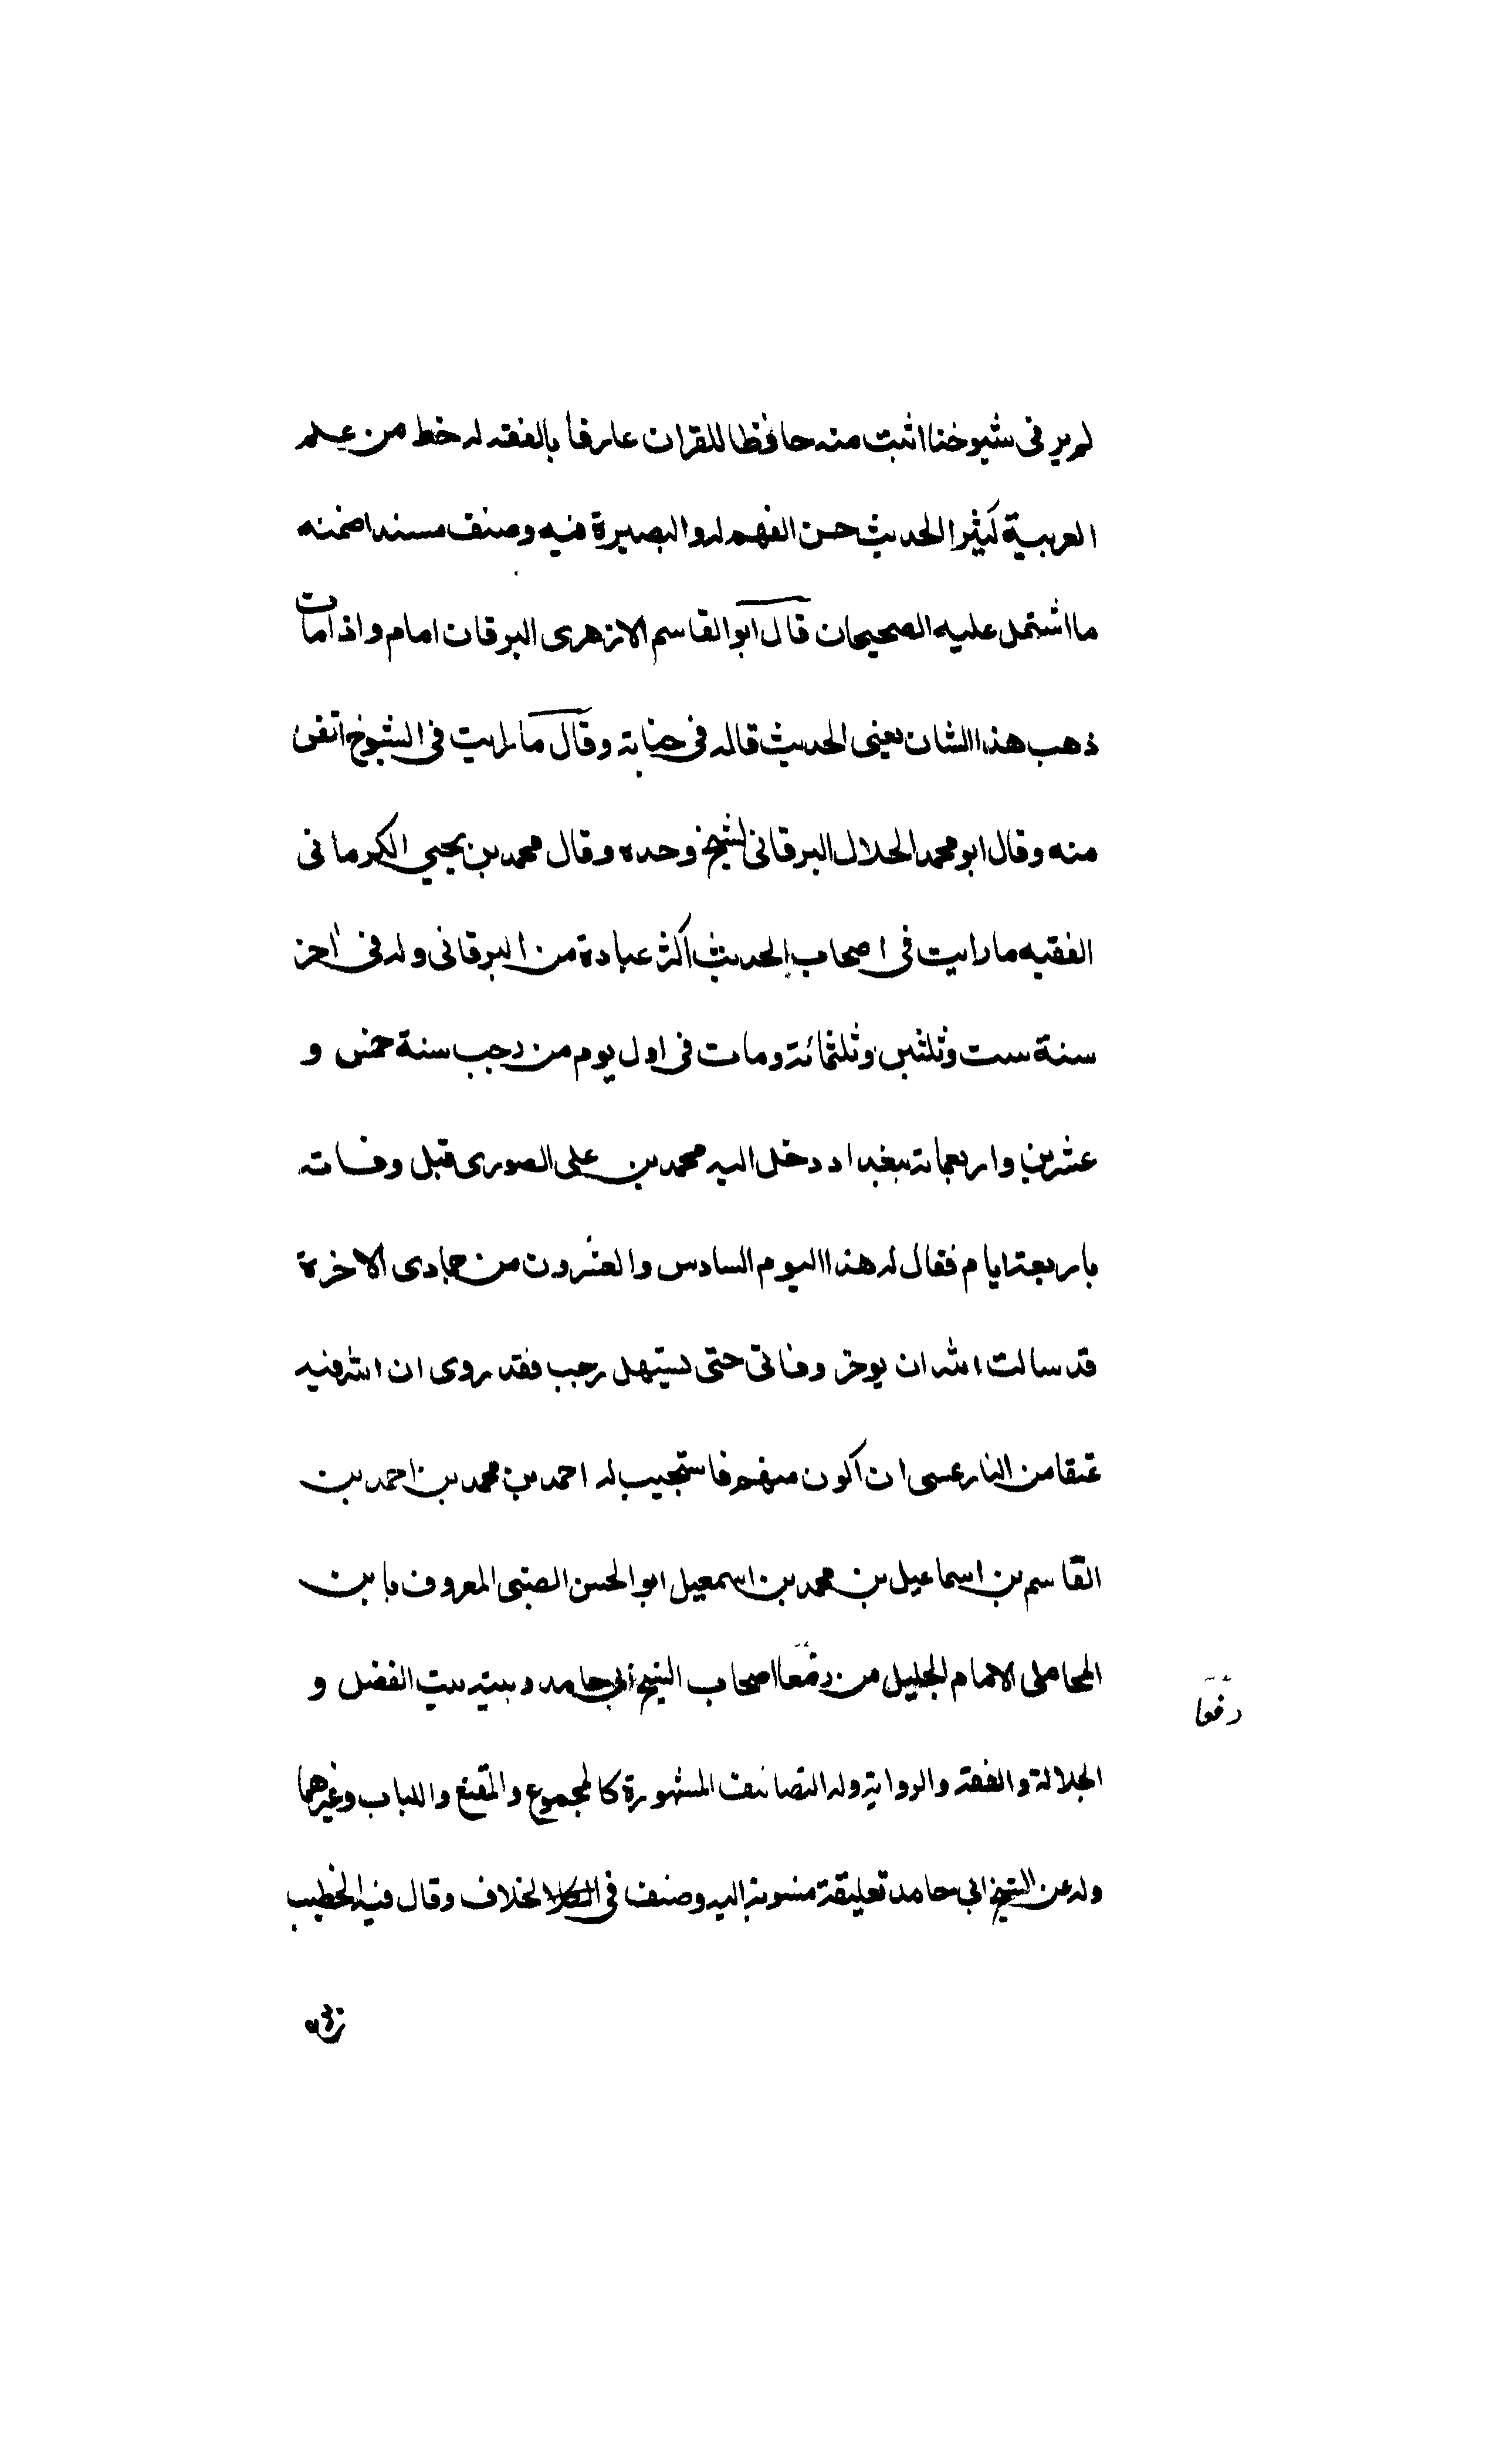 لم ير في شيوخنا اثبت منه حافظا للقران عارفا بالفقه له خط من علم
العربية كثير الحديث حسن الفهم له والبصيرة فيه وصنف مسندا ضمنه
ما اشتمل عليه الصحيحان قال ابو القاسم الازهرى البرقان امام واذا مات
ذهب هذا الشان يعنى الحديث قاله فى حياته وقال ما رايت فى الشيوخ اتقى
منه وقال ابو محمد الحلال البرقانى شيخ وحده وقال محمد بن يحيي الكرمانى
الفقيه ما رايت فى اصحاب الحديث اكثر عبادة من البرقانى ولد فى اخر
سنة ست وثلثين وثلثمائة ومات فى اول يوم من رجب سنة خمس و
عشرين واربعماتة ببغداد دخل اليه محمد بن على الصورى قبل وفاته
باربعة ايام فقال له هذا اليوم السادس والعشرون من جمادى الاخرة
قد سالت الله ان يوخر وفاتى حتى يستهل رجب فقد روى ان الله فيه
عتقا من النار عسى ان اكون منهم فاستجيب له احمد بن محمد بن احمد بن
القاسم بن اسماعيل بن محمد بن اسمعيل ابو الحسن الضبى المعروف بابن
المحاملى الامام الجليل من رفعا اصحاب الشيخ ابى حامد وبيته بيت الفضل و
الجلالة والفقه والرواية وله التصانيف المشهورة كالمجموع والمقنع واللباب وغيرهما
وله عن الشيخ ابى حامد تعليقة منسوبة اليه وصنف فى الخلاف وقال فيه الخطيب
رفعا